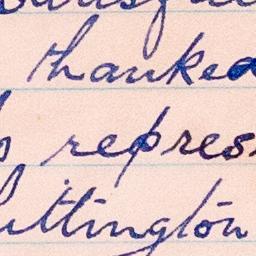 thanked
repres
ittington